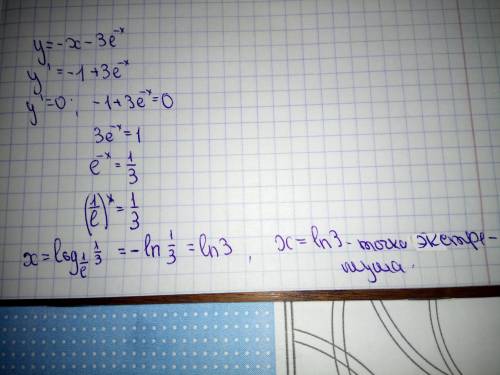 y=-x-3e⁻ˣ
y'=-1+3e⁻ˣ
y'=0; -1+3e⁻ˣ=0
3e⁻ˣ=1
e⁻ˣ=1/3
(1/e)ˣ=1/3
x=log_{1/e} 1/3 = -ln 1/3 = ln3, x=ln3 - точка экстре-
мума.